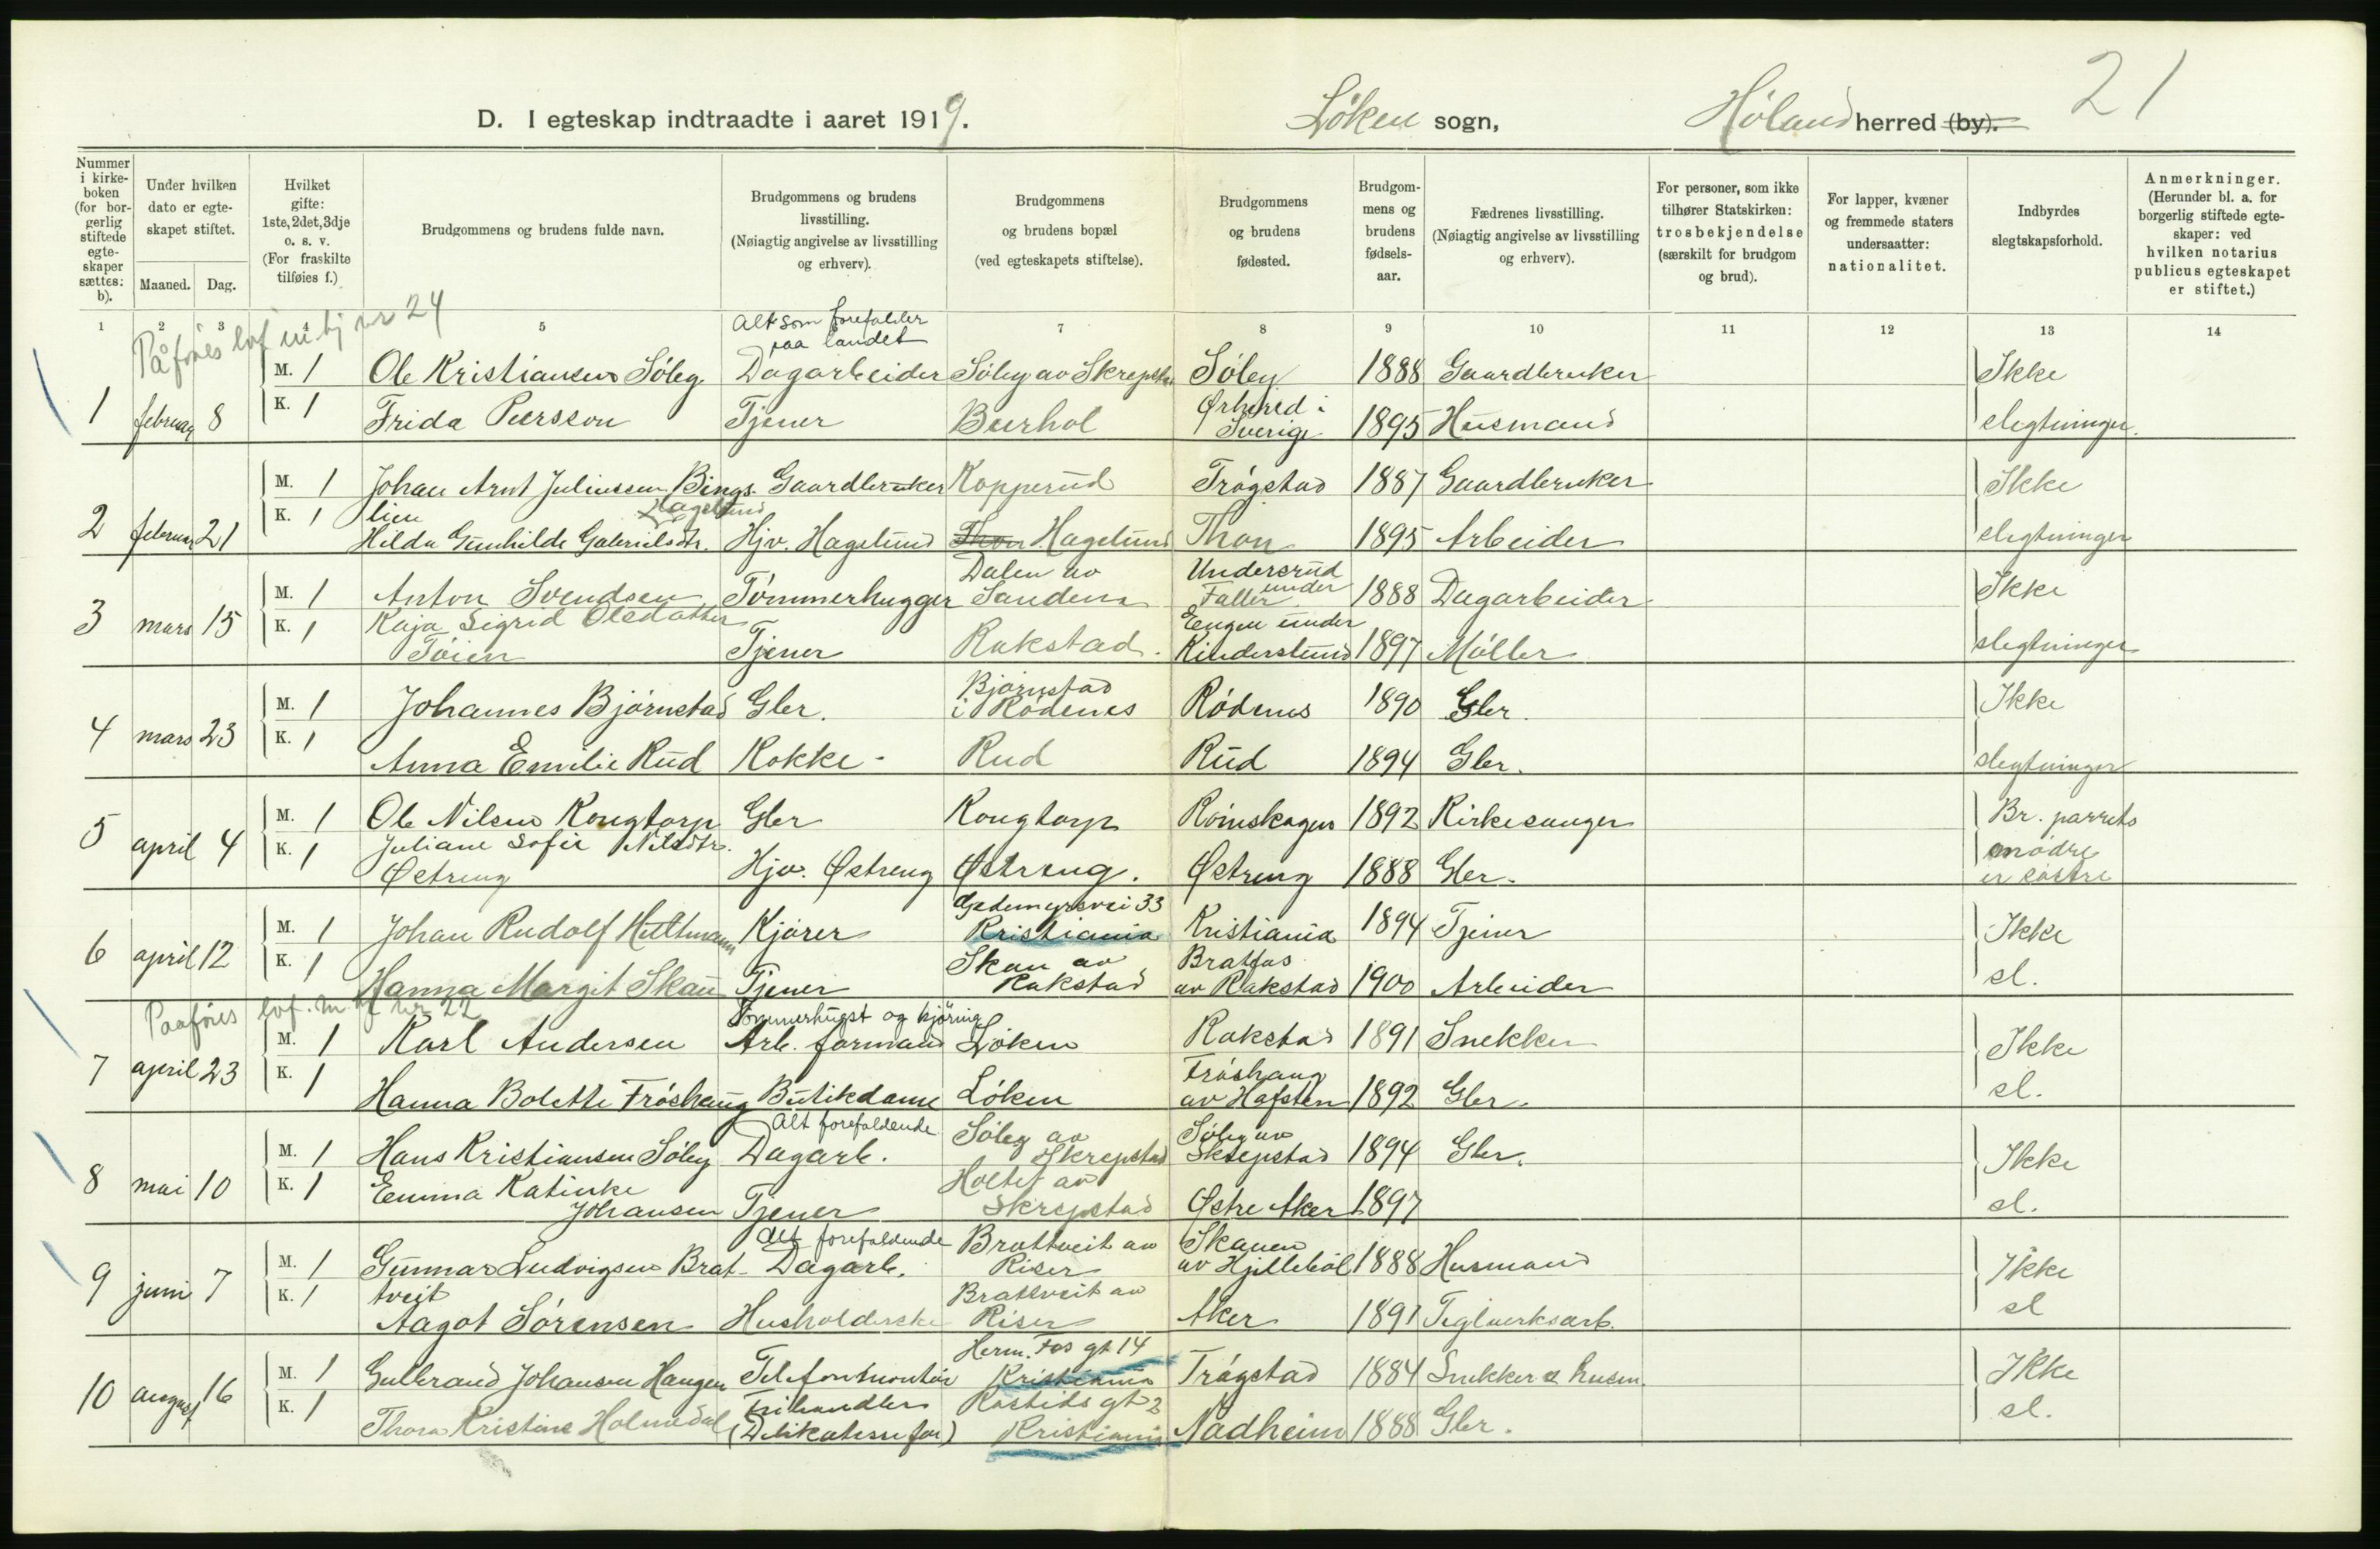 21
D. I egteskap indtraadte i aaret 1919. Løken sogn, Høland herred (by).
Nummer i kirkeboken (for borgerlig stiftede egteskaper sættes: b).
Under hvilken dato er egteskapet stiftet.
Maaned. Dag.
Hvilket gifte: 1ste, 2det, 3dje o. s. v. (For fraskilte tilføies f.)
Brudgommens og brudens fulde navn.
Brudgommens og brudens livsstilling. (Nøiagtig angivelse av livsstilling og erhverv).
Brudgommens og brudens bopæl (ved egteskapets stiftelse).
Brudgommens og brudens fødested.
Brudgommens og brudens fødselsaar.
Fædrenes livsstilling. (Nøiagtig angivelse av livsstilling og erhverv).
For personer, som ikke tilhører Statskirken: trosbekjendelse (særskilt for brudgom og brud).
For lapper, kvæner og fremmede staters undersaatter: nationalitet.
Indbyrdes slegtskapsforhold.
Anmerkninger. (Herunder bl. a. for borgerlig stiftede egteskaper: ved hvilken notarius publicus egteskapet er stiftet.)
1 2 3 4 5 7 8 9 10 11 12 13 14
Påføres lof nr 24
Alt som forefalder paa landet
1 februar 8 M. 1 Ole Kristiansen Søleg Dagarbeider Søleg av Skrepstad Søleg 1888 Gaardbruker Ikke
K. 1 Frida Peersson Tjener Beerhol Ørhered i Sverige 1895 Husmand slegtninger.
2 februar 21 M. 1 Johan Arnt Juliussen Bingslien Gaardbruker Kopperud Trøgstad 1887 Gaardbruker Ikke
Hagelund
K. 1 Hilda Gunhilde Gabrielsdtr. Hjv. Hagelund Thon Hagelund Thon 1895 Arbeider slegtninger
3 mars 15 M. 1 Anton Svendsen Tømmerhugger Dalen av Sandem Underrud under Faller 1888 Dagarbeider Ikke
K. 1 Kaja Sigrid Olsdatter Tøien Tjener Rakstad. Engen under Kinderslund 1897 Møller slegtninger
4 mars 23 M. 1 Johannes Bjørnstad Gbr. Bjørnstad i Rødenes Rødenes 1890 Gbr. Ikke
K. 1 Anna Emilie Rud Kokke - Rud Rud 1894 Gbr. slegtninger
5 april 4 M. 1 Ole Nilsen Kongtorp Gbr Kongtorp Rømskogen 1892 Kirkesanger Br. parrets
K. 1 Juliane Sofie Nilsdtr. Østreng Hjv. Østreng Østreng. Østreng 1888 Gbr. mødre er søstre
6 april 12 M. 1 Johan Rudolf Hultmann Kjører Gedemyrsvei 33 Kristiania Kristiania 1894 Tjener Ikke
K. 1 Hanna Margit Skau Tjener Skau av Rakstad Bratfas av Rakstad 1900 Arbeider sl.
Paaføres lof. nr 22
7 april 23 M. 1 Karl Andersen Tømmerhugst og kjøring Arb. formand Løken Rakstad 1891 Snekker Ikke
K. 1 Hanna Bolette Frøshaug Butikdame Løken Frøshaug av Hafsten 1892 Gbr. sl.
8 mai 10 M. 1 Hans Kristiansen Søleg Alt forefaldende Dagarb. Søleg av Skrepstad Søleg av Skrepstad 1894 Gbr. Ikke
K. 1 Emma Katinke Johansen Tjener Holtet av Skrepstad Østre Aker 1897 sl.
9 juni 7 M. 1 Gunnar Ludvigsen Brattveit Alt forefaldende Dagarb. Brattveit av Riser Skauen av Hjellebøl 1888 Husmand Ikke
K. 1 Aagot Sørensen Husholderske Brattveit av Riser Aker 1891 Teglverksarb. sl
10 august 16 M. 1 Gulbrand Johansen Haugen Telefonmontør Herm. Fos gt 14 Kristiania Trøgstad 1884 Snekker & husm. Ikke
K. 1 Thora Kristine Holmedal Frihandler (Delikatesse for) Rostids gt 2 Kristiania Nadheim 1888 Gbr. sl.